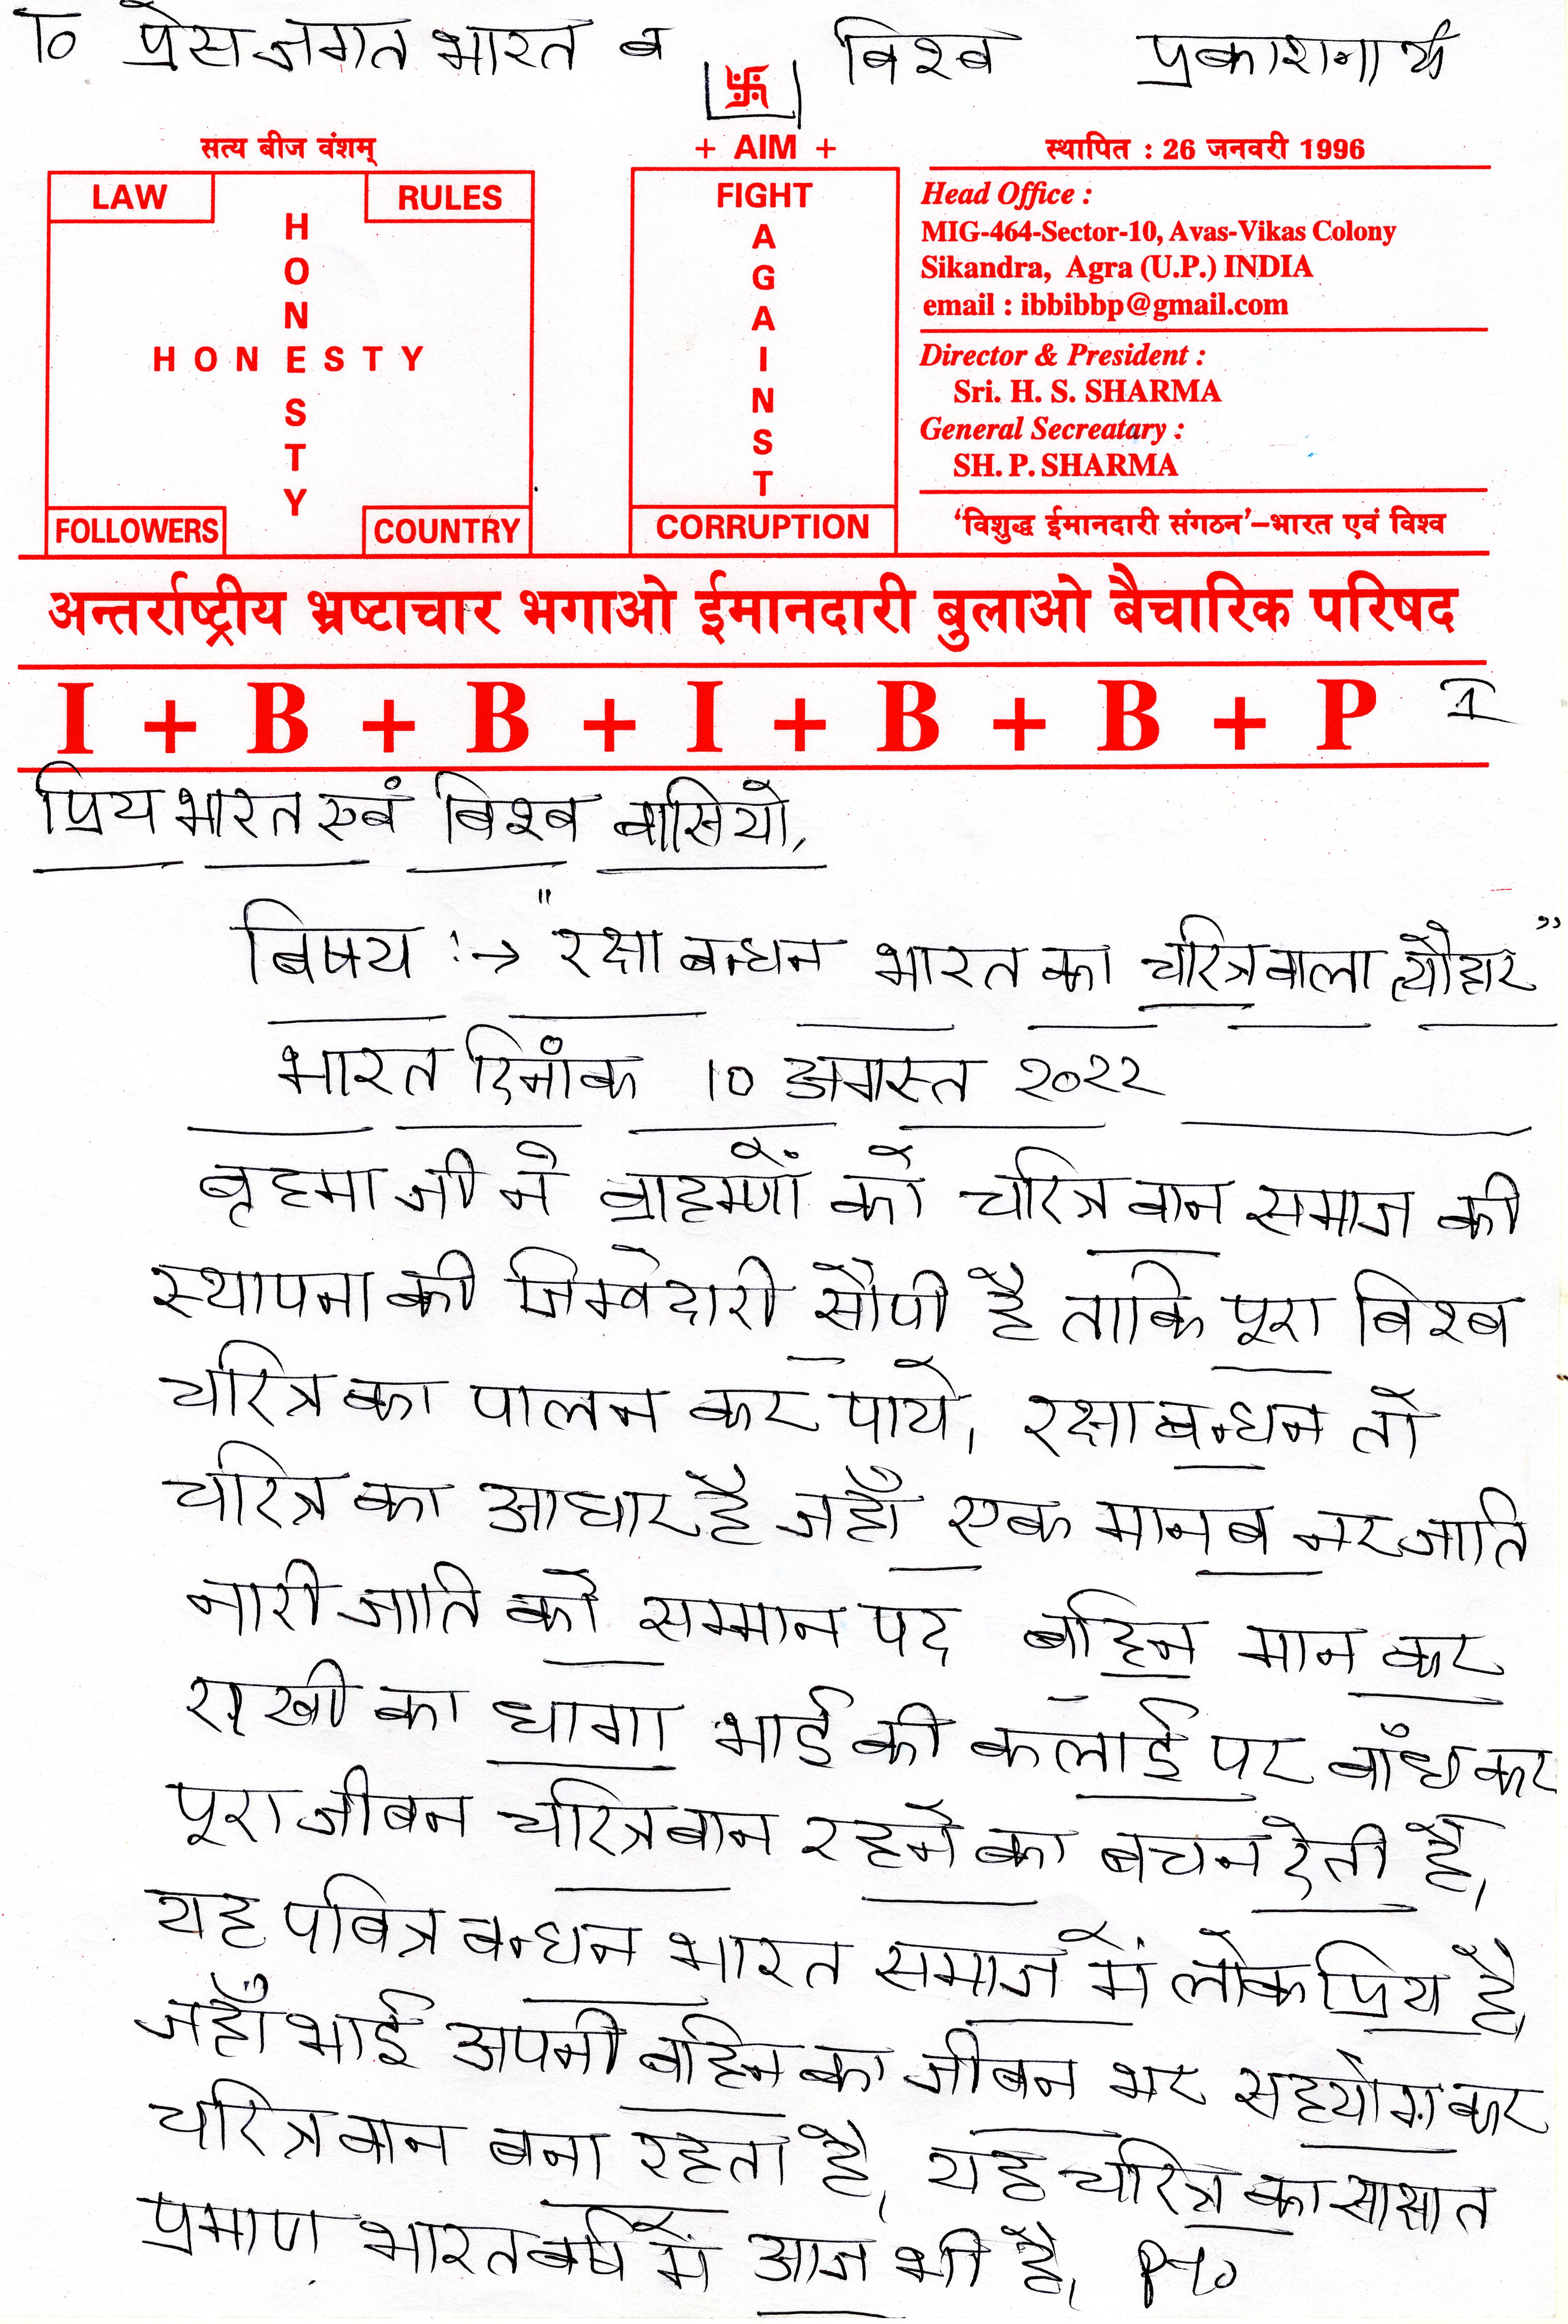 To प्रेस जगत भारत व विश्ब प्रकाशनार्थ
सत्य बीज वंशम्
LAW
RULES
HONESTY
HONESTY
FOLLOWERS
COUNTRY
+ AIM +
FIGHT
AGAINST
CORRUPTION
स्थापित : 26 जनवरी 1996
Head Office :
MIG-464-Sector-10, Avas-Vikas Colony
Sikandra, Agra (U.P.) INDIA
email : ibbibbp@gmail.com
Director & President :
Sri. H. S. SHARMA
General Secreatary :
SH. P. SHARMA
‘विशुद्ध ईमानदारी संगठन’–भारत एवं विश्व
अन्तर्राष्ट्रीय भ्रष्टाचार भगाओ ईमानदारी बुलाओ बैचारिक परिषद
I + B + B + I + B + B + P 1
प्रिय भारत एबं बिश्ब बासियो,
बिषय :→ "रक्षा बन्धन भारत का चरित्रवाला त्यौहार"
भारत दिनाँक 10 अगस्त २०२२
बृहमा जी ने ब्राहम्णों को चरित्रबान समाज की
स्थापना की जिम्वेदारी सौपी है ताकि पूरा बिश्ब
चरित्र का पालन कर पाये, रक्षा बन्धन तो
चरित्र का आधार है जहाँ एक मानब नर जाति
नारी जाति को सम्मान पद बहिन मान कर
राखी का धागा भाई की कलाई पर बाँध कर
पूरा जीबन चरित्रबान रहने का बचन देती है,
यह पबित्र बन्धन भारत समाज में लोकप्रिय है,
जहाँ भाई अपनी बहिन का जीबन भर सहयोग कर
चरित्रबान बना रहता है, यह चरित्र का साक्षात
प्रमाण भारतबर्ष में आज भी है, PTO